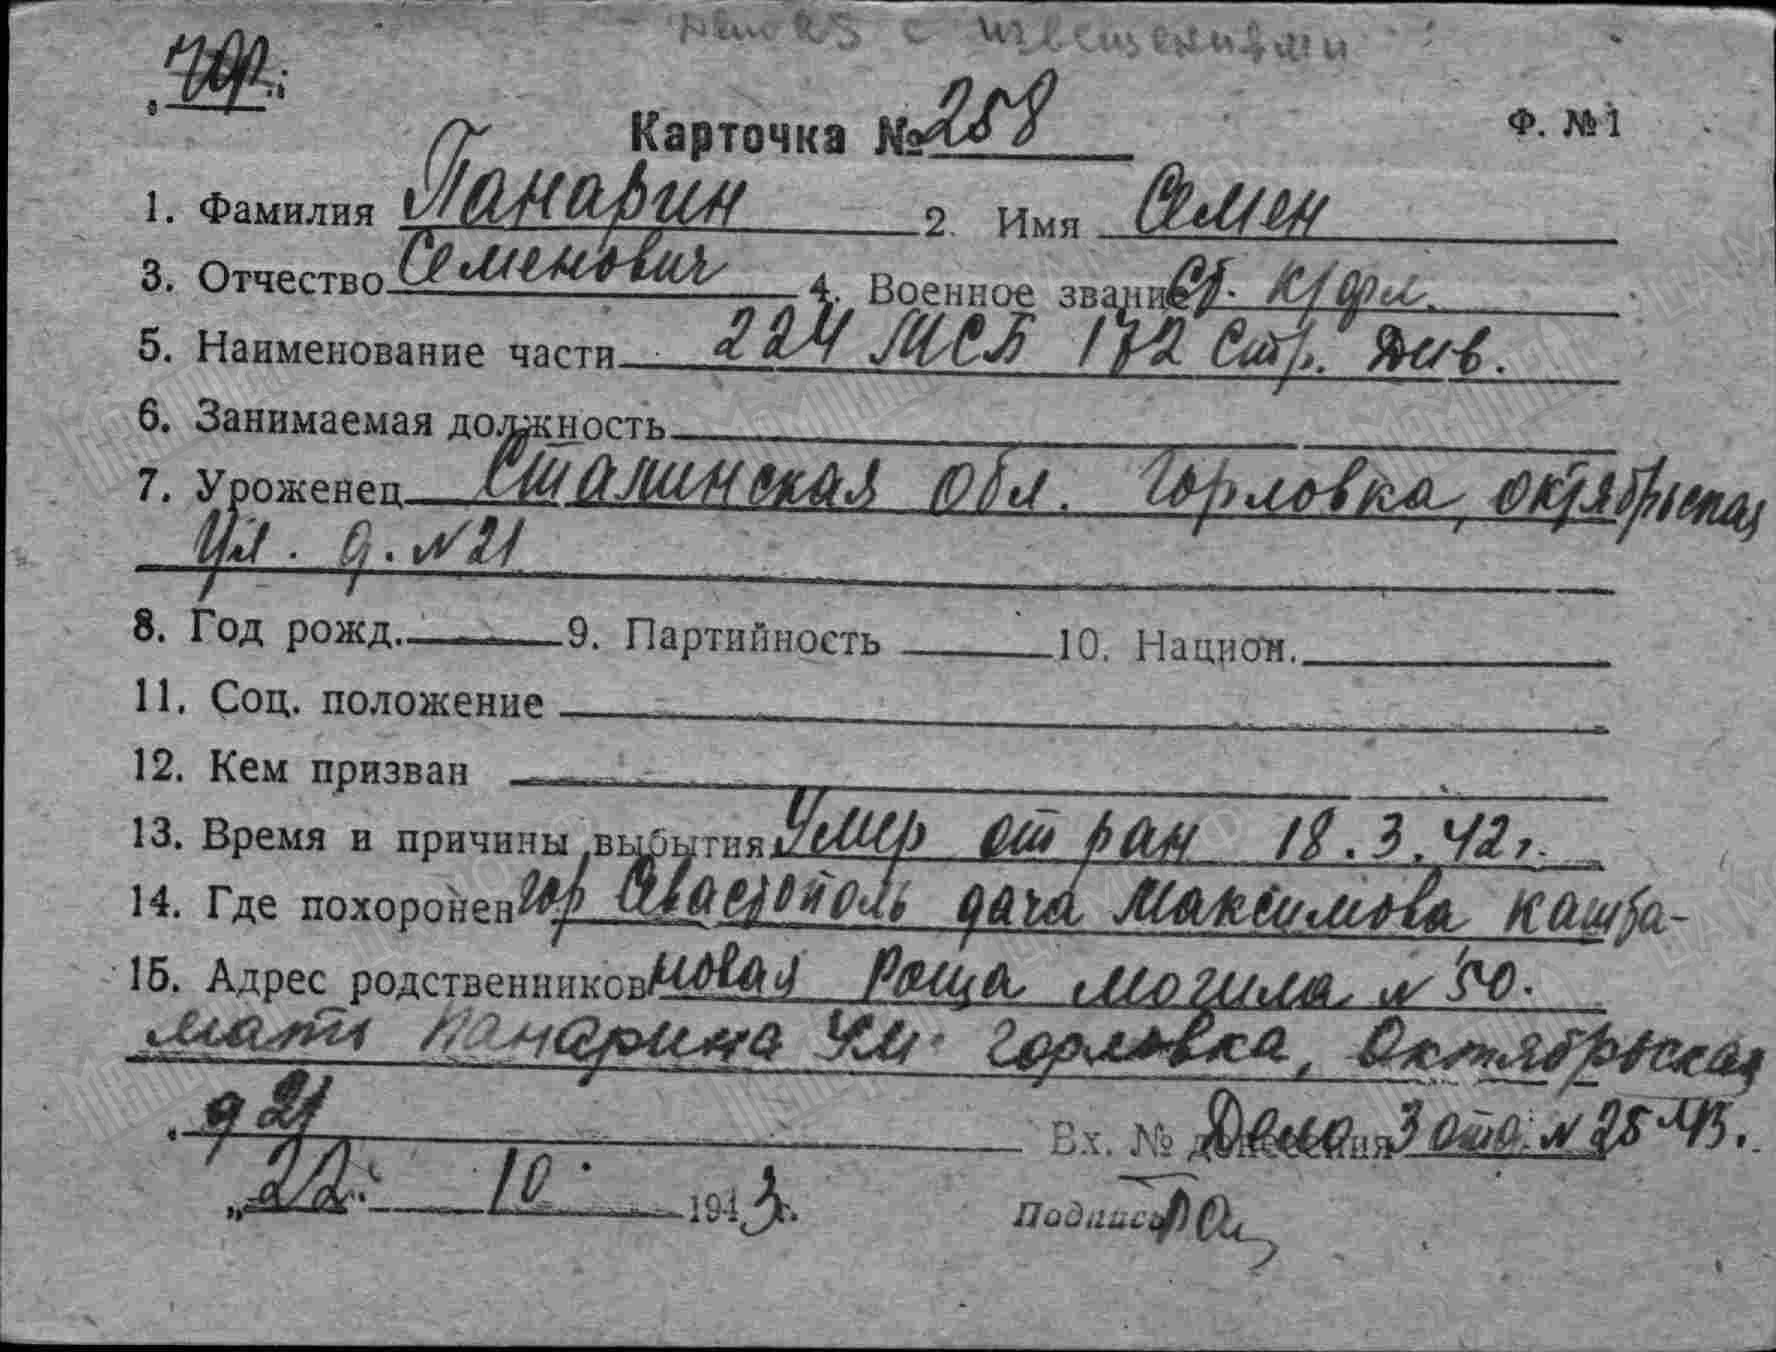 с извещениями
Карточка № 258 Ф. № 1
1. Фамилия Панарин 2. Имя Семен
3. Отчество Семенович 4. Военное звание Ст. к/фл.
5. Наименование части 224 МСБ 172 Стр. Див.
6. Занимаемая должность
7. Уроженец Сталинская обл. Горловка, октябрьская
ул. д. N 21
8. Год рожд. 9. Партийность 10. Национ.
11. Соц. положение
12. Кем призван
13. Время и причины выбытия Умер от ран 18.3.42 г.
14. Где похоронен гор Севастополь дача Максимова кашта-
15. Адрес родственников новая роща могила N 50.
мать Панарина Ум. Горловка, Октябрьская
д 21
Вх. № донесения Дело 3 отд. N 25
„22" 10 1943 г.
Подпись